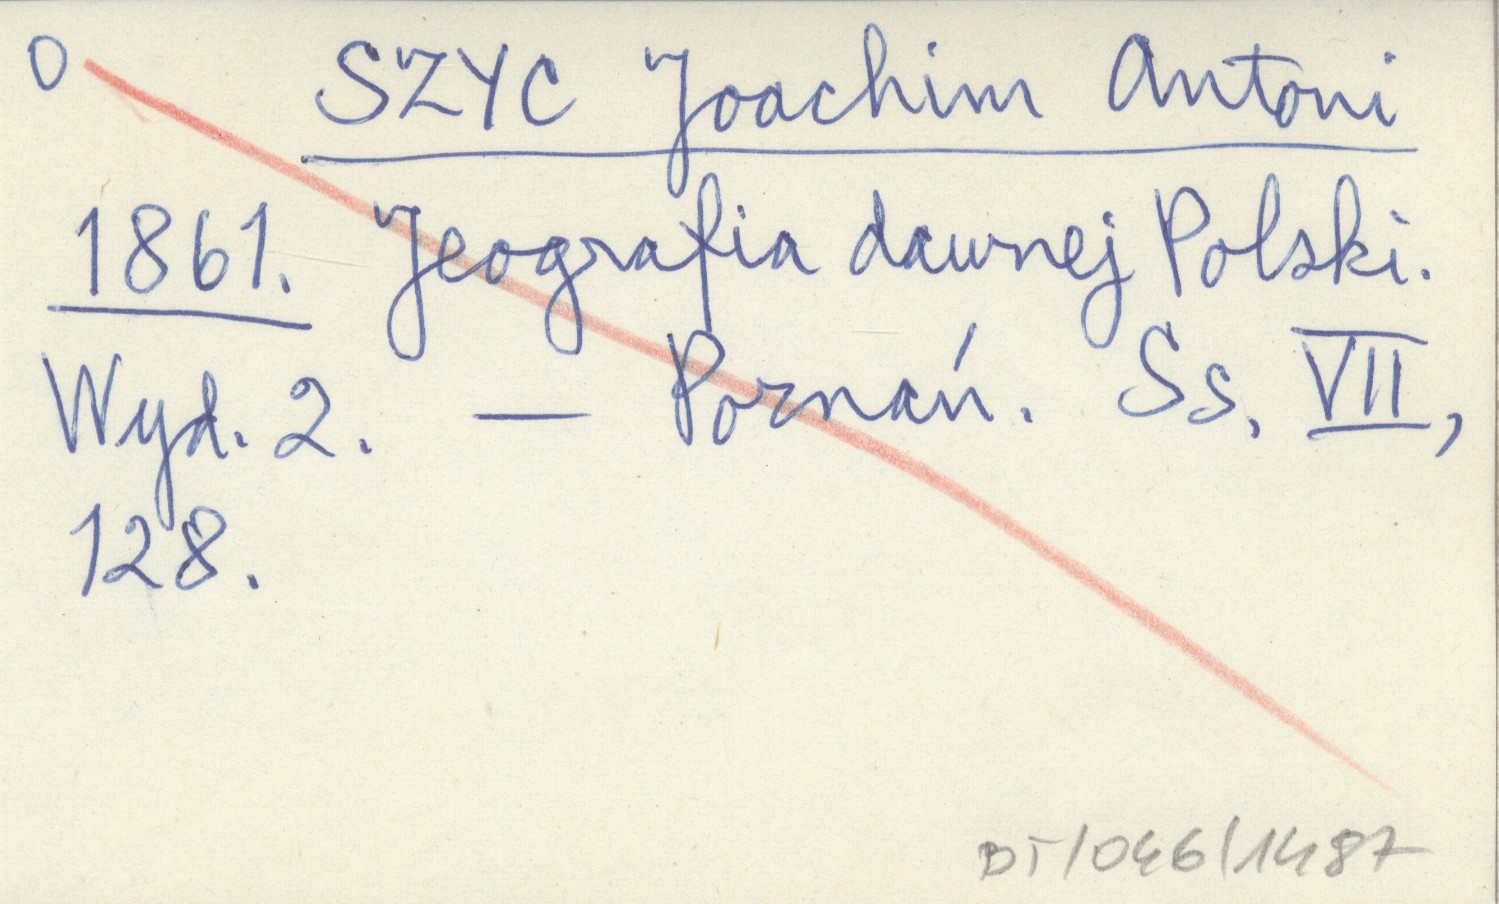 O SZYC Joachim Antoni
1861. Jeografia dawnej Polski.
Wyd. 2. — Poznań. Ss. VII,
128.
DT/046/1487